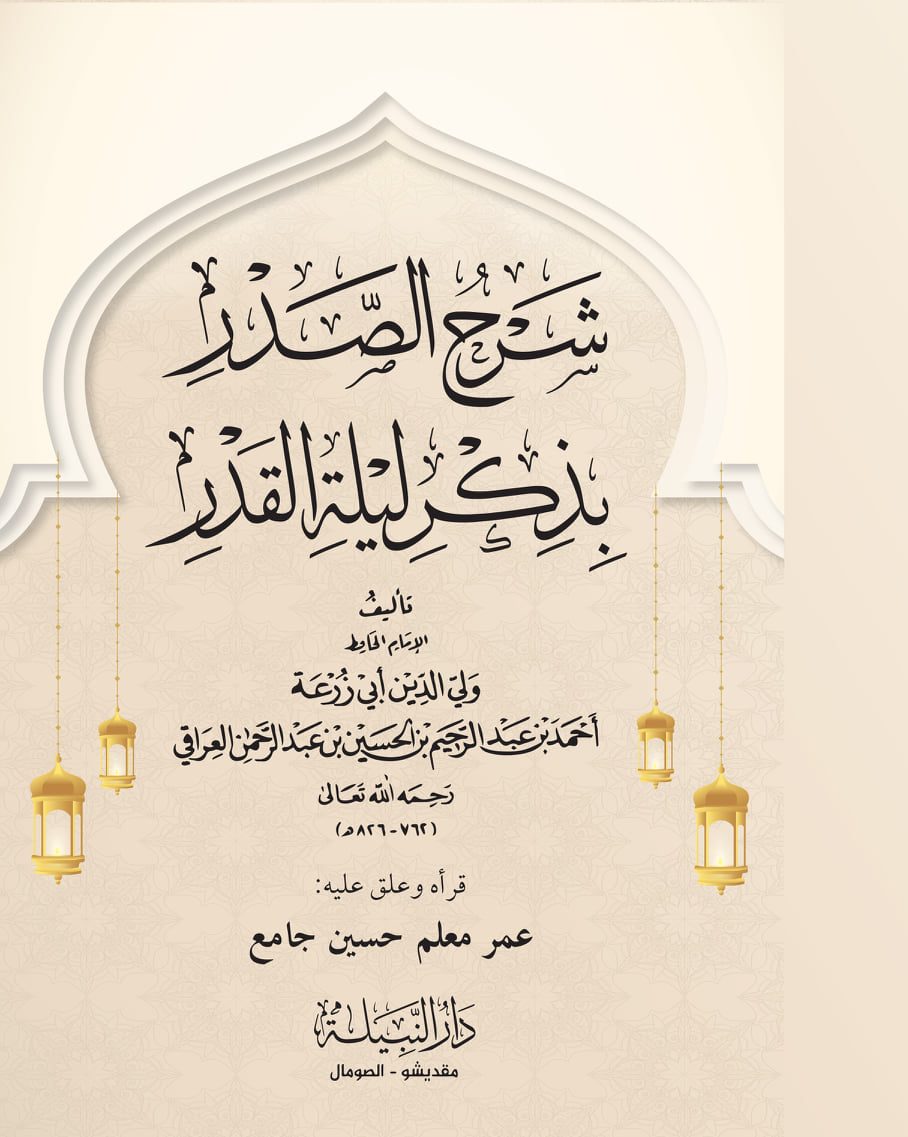 شَرْحُ الصَّدْرِ
بِذِكْرِ لَيْلَةِ القَدْرِ
تأليفُ
الإمَامِ الحَافِظِ
وَلِيّ الدِّيْن أبِيْ زُرْعَة
أَحْمَدَ بْنِ عَبْدِ الرَّحِيمِ بْنِ الحُسَيْن بْنِ عَبْدِ الرَّحْمٰنِ العِرَاقِي
رَحِمَه اللّه تَعَالىٰ
(٧٦٢-٨٢٦هـ)
قرأه وعلق عليه:
عمر معلم حسين جامع
دَارُ النَّبِيلَة
مقديشو - الصومال